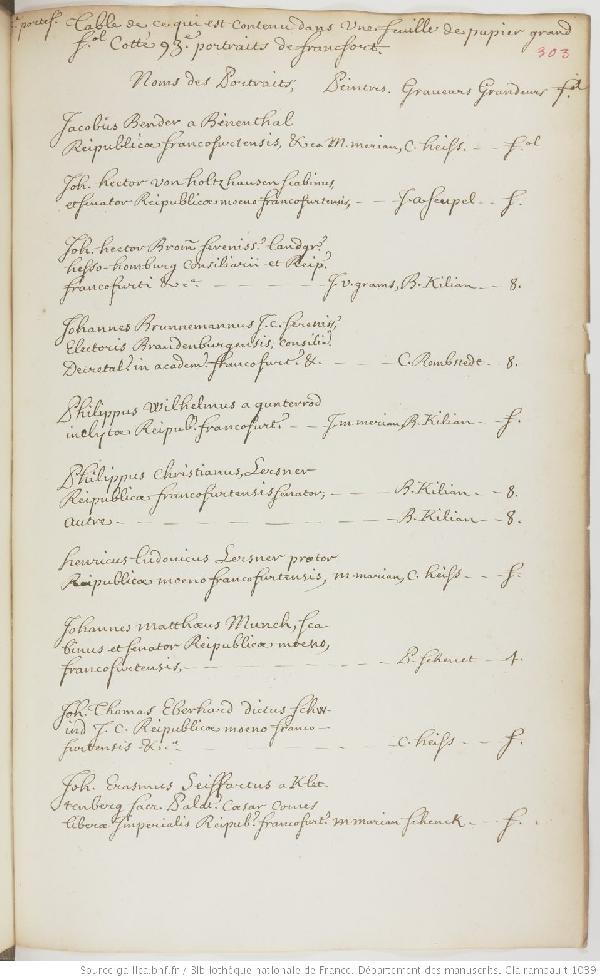 e portef.
Table de ce qui est contenu dans Une feuille de papier grand
f.ol Cotté 93.e portraits de francfort.
303
Noms des Portraits, Peintres. Graveurs Grandeurs f.ol
Jacobus Bender a Bienenthal
Reipublicæ francofurtensis, &ca M. merian, C. heiss. - - f.ol
Joh. hector von holtzhausen scabinus
et senator Reipublicæ moeno francofurtensis, - - J. a. Seupel - - f.
Joh. hector Brom̃ sereniss.i Landgr.
hesso-homburg Consiliarii et Reip.
francofurti &c.a - - - - - J. v. grams, B. Kilian - - 8.
Johannes Brunnemannus J. C. serenis,
Electoris Brandenburgensis, Consili.
Decretal. in academ. francofurt. &. - - - C. Romstede - 8.
Philippus Wilhelmus a gunterrod
inclytæ Reipub. francofurt. - - J. m. merian, B. Kilian - - f.
Philippus Christianus, Lersner
Reipublicæ francofurtensis senator, - - - B. Kilian - - 8.
autre - - - - - - - - B. Kilian - - 8.
henricus-ludovicus Lersner prætor
Reipublicæ moeno francofurtensis, m. marian, C. heiss - - - f.
Johannes matthæus Munch, sca-
binus et senator Reipublicæ moeno,
francofurtensis, - - - - - - - P. schenct - 4.
Joh. Thomas Eberhard dictus schw-
ind J. C. Reipublicæ moeno franco-
furtensis &c.a - - - - - - C. heiss - - f.
Joh. Erasmus Seiffartus a Klet-
tenberg sacr. Palat. Cæsar Comes
liberæ Imperialis Reipub. francofurt. m marian schenck - - f.
Source gallica.bnf.fr / Bibliothèque nationale de France. Département des manuscrits. Clairambault 1039